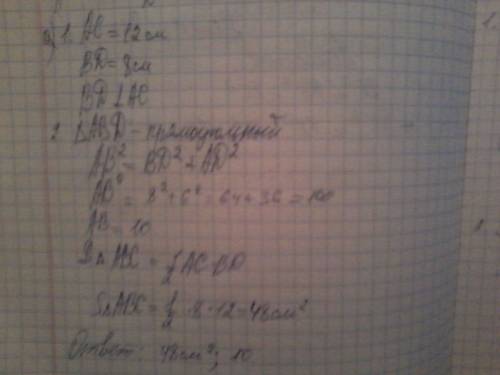 а) 1. AC = 12 см
BD = 8 см
BD ⊥ AC
2. △ABD - прямоугольный
AB² = BD² + AD²
AB² = 8² + 6² = 64 + 36 = 100
AB = 10
S△ABC = 1/2 AC·BD
S△ABC = 1/2 · 8 · 12 = 48 см²
Ответ: 48 см²; 10.
1.